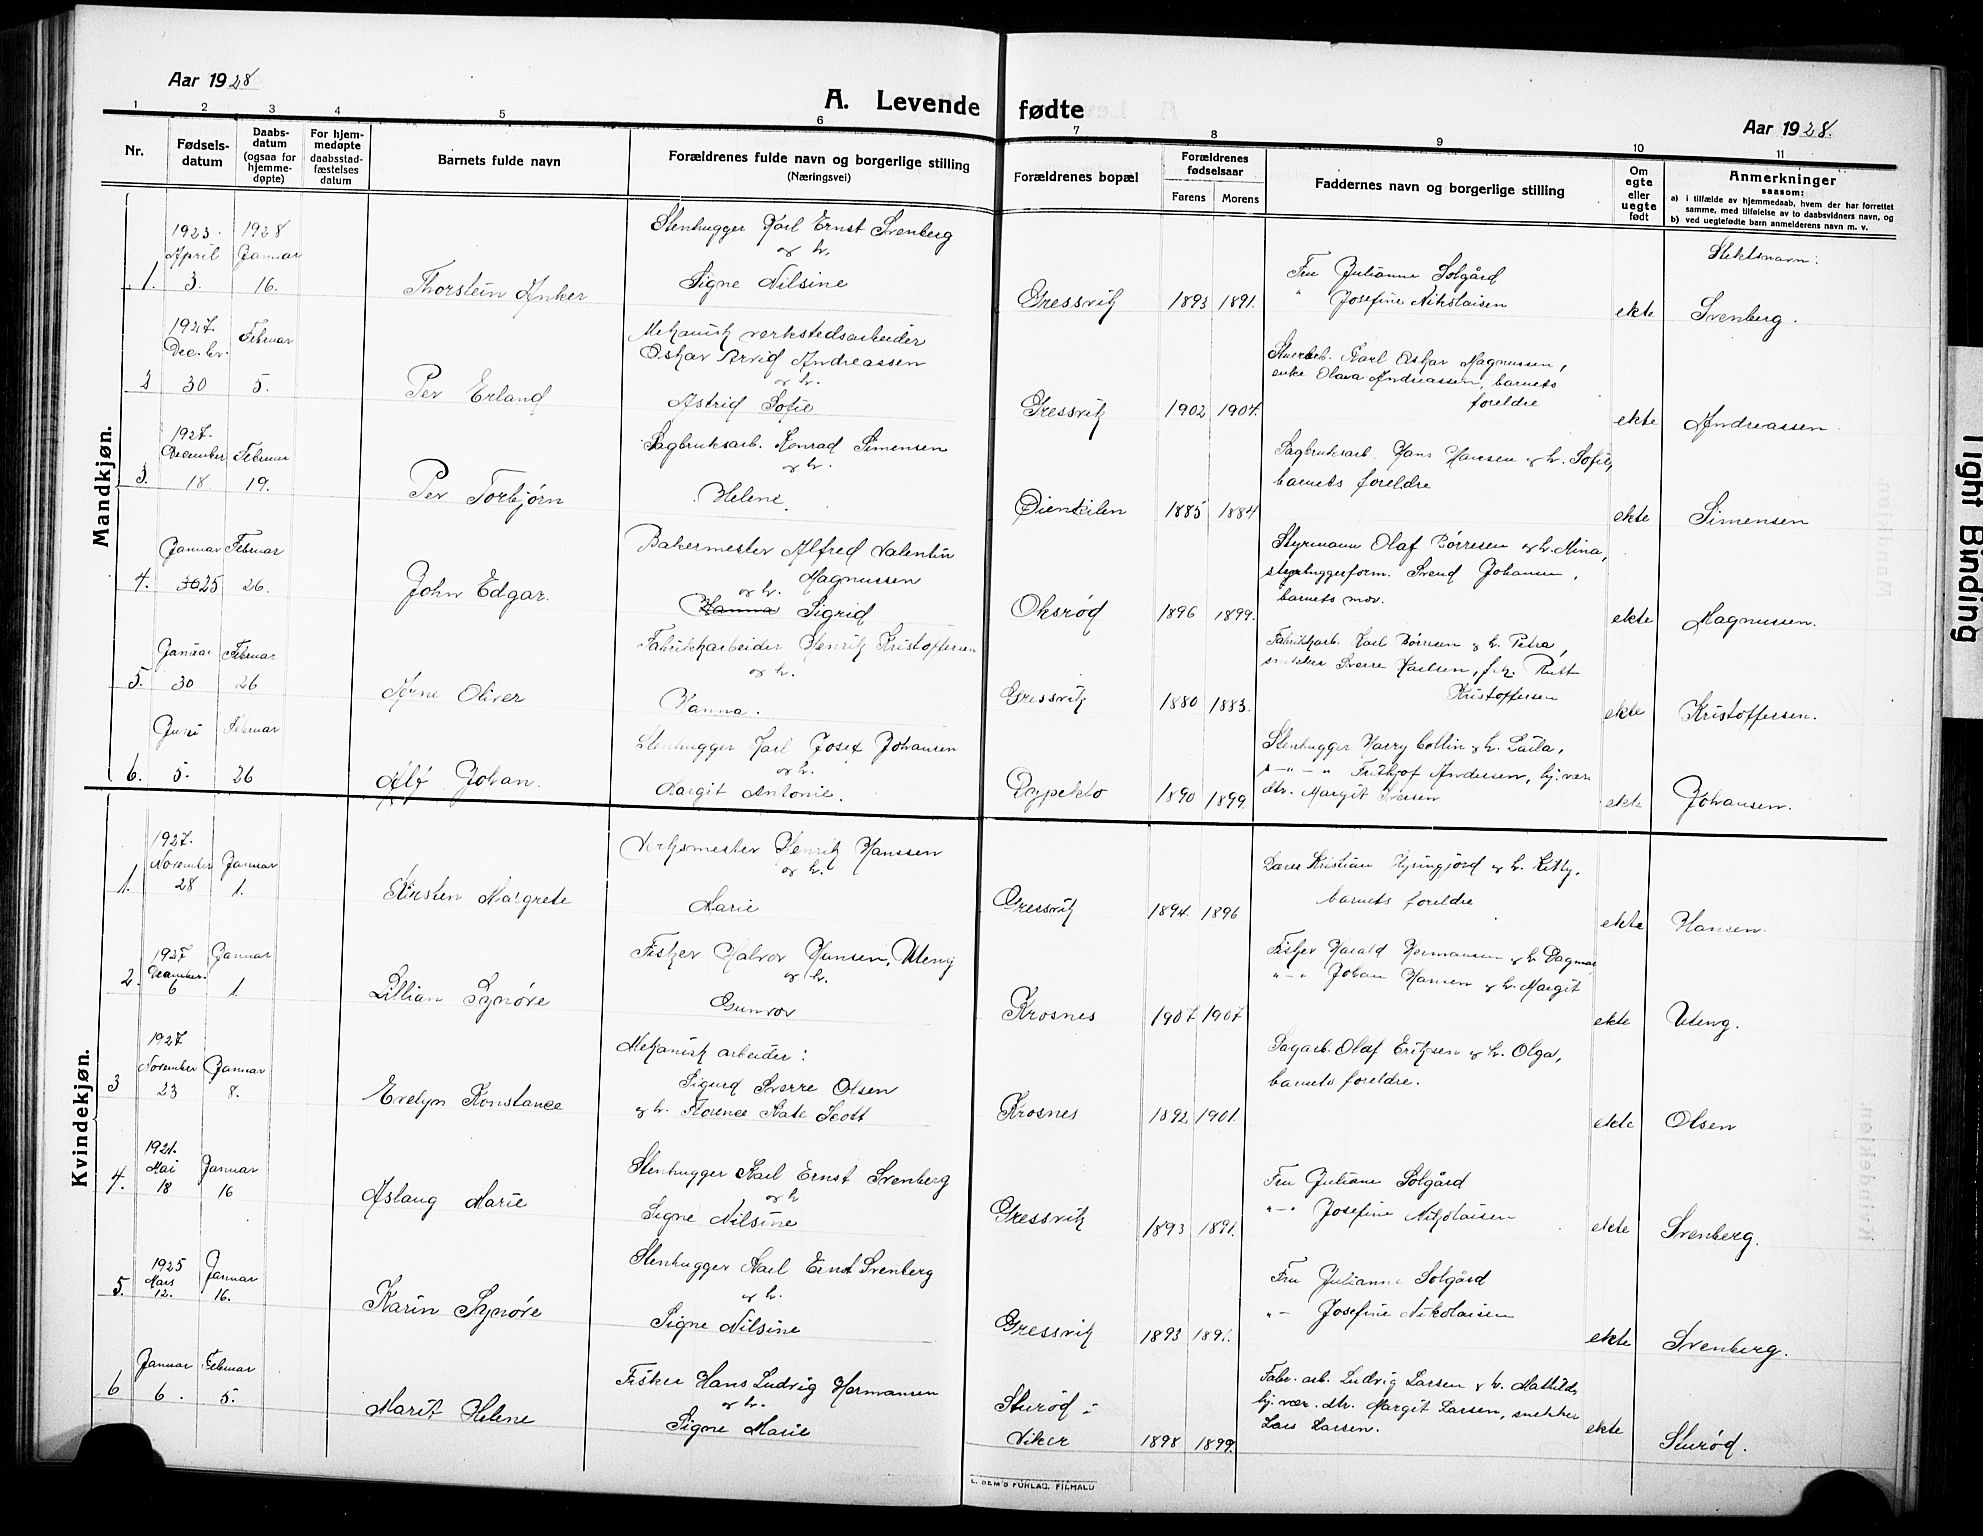 Aar 1928
A. Levende fødte
Aar 1928.
1 2 3 4 5 6 7 8 9 10 11
Nr.
Fødsels-
datum
Daabs-
datum
(ogsaa for
hjemme-
døpte)
For hjem-
medøpte
daabsstad-
fæstelses
datum
Barnets fulde navn
Forældrenes fulde navn og borgerlige stilling
(Næringsvei)
Forældrenes bopæl
Forældrenes
fødselsaar
Farens Morens
Faddernes navn og borgerlige stilling
Om
egte
eller
uegte
født
Anmerkninger
saasom:
a) i tilfælde av hjemmedaab, hvem der har forrettet
samme, med tilføielse av to daabsvidners navn, og
b) ved uegtefødte barn anmelderens navn m. v.
Mandkjøn.
1923. 1928 Stenhugger Karl Ernst Svenberg Slektsnavn:
April Januar og h. Fru Julianne Solgård
1. 3. 16. Thorstein Anker Signe Nilsine Gressvik 1893 1891. " Josefine Nikolaisen ekte Svenberg.
1927. Februar Mekanisk verkstedsarbeider
Decbr. Oskar Arvid Andreassen Karl Oskar Magnussen,
og h. enke Olava Andreassen, barnets
2 30 5. Per Erland Astrid Sofie Gressvik 1902 1904. foreldre ekte Andreassen.
1927. Sagbruksarb. Konrad Simensen Sagbruksarb. Hans Hansen og h. Sofie,
December Februar og h. barnets foreldre
3. 18 19. Per Torbjørn Helene. Øienkilen 1885 1884 ekte Simensen
Januar Februar Bakermester Alfred Valentin Styrmann Olaf Børresen og h. Mina,
Magnussen Svend Johansen,
og h. barnets mor.
4. 30 25 26. John Edgar. Hanna Sigrid Oksrød 1896 1899. ekte Magnussen.
Januar Februar Fabrikkarbeider Henrik Kristoffersen Fabrikkarb. Karl Børresen og h. Petra,
og h. snekker Sverre Karlsen, frk. Rutt
5. 30 26 Arne Oliver Hanna. Gressvik 1880 1883. Kristoffersen ekte Kristoffersen.
Februar Stenhugger Karl Josef Johansen Stenhugger Harry Collin og h. Laila,
og h. " - " - " Fritjof Andersen, hj. vær.
6. 5. 26 Alf Johan. Margit Antonie. 1890 1899. dtr. Margit Iversen ekte Johansen.
Kvindekjøn.
1927. Verksmester Henrik Hanssen
November Januar og h. Kristian og h.
1. 28 1. Kirsten Margrete Marie Gressvik 1894. 1896 barnets foreldre ekte Hansen.
1927 Januar Fisker Halvor Hansen, Uteng Fisker Harald Hermansen og h. Dagmar
December og h. " - " Johan Hansen og h. Margit
2. 6 1. Lillian Synøve Gunvor Krosnes 1907 1907 ekte Uteng.
1927 Mekanisk arbeider: Sagarb. Olaf Eriksen og h. Olga,
November Januar Sigurd Sverre Olsen barnets foreldre.
3 23 8. Evelyn Konstance og h. Florence Kate Scott Krosnes 1892 1901. ekte Olsen
1921. Stenhugger Karl Ernst Svenberg Fru Juliane Solgård
Mai Januar og h
4. 18 16 Aslaug Marie Signe Nilsine Gressvik 1893 1891. " - " Josefine Nikolaisen ekte Svenberg.
1925 Stenhugger Karl Ernst Svenberg Fru Julianne Solgård
Mars Januar og h.
5. 12. 16. Karin Synøve Signe Nilsine Gressvik 1893 1891. " - Josefine Nikolaisen ekte Svenberg.
Januar Februar Fisker Hans Ludvig Hermansen Fabr. arb. Ludvig Larsen og h. Mathilde,
og h. Sturød: hj. vær. dtr. Margit Larsen, snekker
6 6. 5. Marit Helene Signe Marie Viker 1898 1899. Lars Larsen. ekte Sturød.
E. SEM'S FORLAG, FR.HALD
Tight Binding